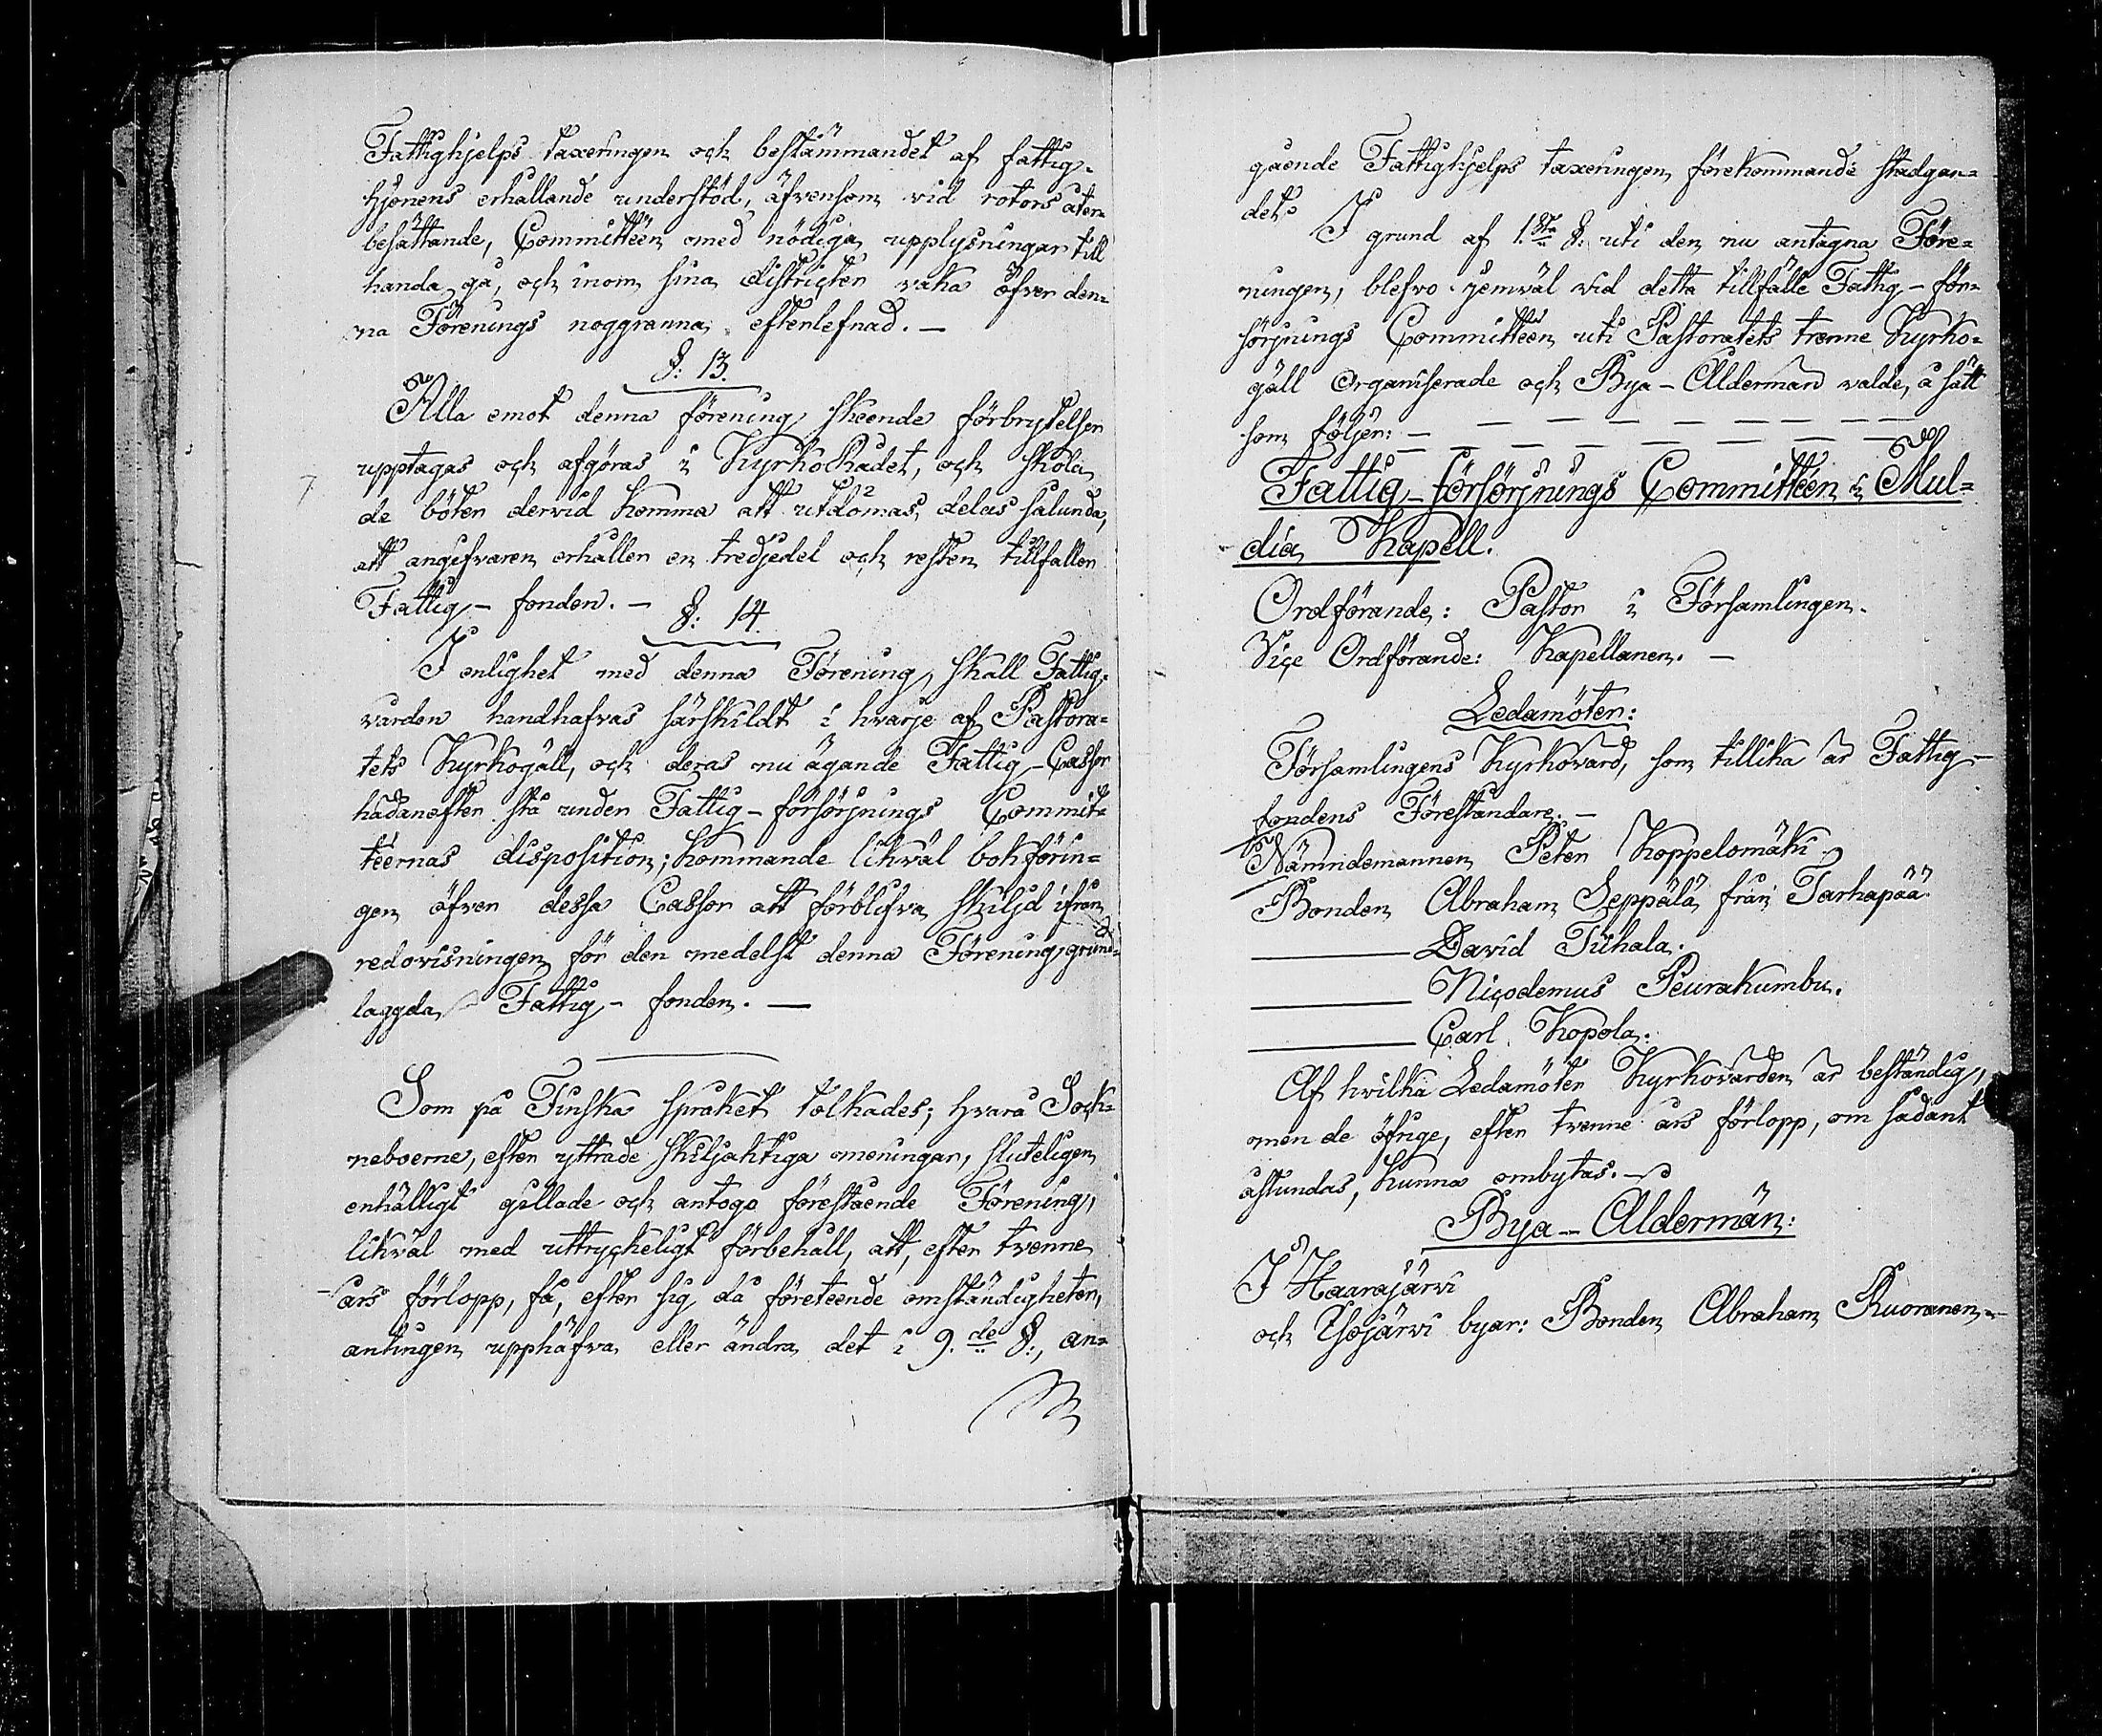 Fattighjelps taxeringen och bestämmandet af fattig-
hjonens erhållande understöd, äfvensom vid rotors åter-
besättande, Committéen med nödiga upplysningar till
handa gå, och inom sina districter vaka öfver den-
na Förenings noggranna efterlefnad. —
§: 13.
Alla emot denna förening skeende förbrytelser
upptagas och afgöras i KyrkoRådet, och skola
de böter dervid komma att utdömas, delas sålunda,
att angifvaren erhåller en tredjedel och resten tillfaller
Fattig-fonden. —
§: 14.
I enlighet med denna Förening, skall Fattig-
vården handhafvas särskildt i hvarje af Pastora-
tets Kyrkogäll, och deras nu ägande Fattig-Cassor
hädanefter stå under Fattig-försörjnings Commit-
téernas disposition; kommande likväl bokförin-
gen öfver dessa Cassor att förblifva skiljd ifrån
redovisningen för den medelst denna Förening, grund-
laggda Fattig-fonden. —
Som på Finska språket tolkades; hvarå Sock-
neboerne, efter yttrade skiljaktiga meningar, sluteligen
enhälligt gillade och antogo förestående Förening,
likväl med uttryckeligt förbehåll, att, efter trenne
års förlopp, få, efter sig då företeende omständigheter,
antingen upphäfva eller ändra det i 9.de §:, an-
gående Fattighjelps taxeringen förekommande stadgan-
det.
I grund af 1.sta §: uti den nu antagna Före-
ningen, blefvo jemväl vid detta tillfälle Fattig-för-
sörjnings Committéen uti Pastoratets trenne Kyrko-
gäll Organiserade och Bya-Ålderman valde, å sätt
som följer: —
Fattig-försörjnings Committéen i Mul-
dia Kapell.
Ordförande: Pastor i Församlingen.
Vice Ordförande: Kapellanen. —
Ledamöter:
Församlingens Kyrkovärd, som tillika är Fattig-
fondens Föreståndare. —
Nämndemannen Peter Koppelomäki
Bonden Abraham Seppälä från Tarhapää.
——— David Tuhala.
——— Nicodemus Peurakumbu.
——— Carl Kopola.
Af hvilka Ledamöter Kyrkovärden är beständig,
men de öfrige, efter trenne års förlopp, om sådant
åstundas, kunna ombytas. —
Bya-Åldermän:
I Haarajärvi
och Isojärvi byar: Bonden Abraham Ruoranen. —